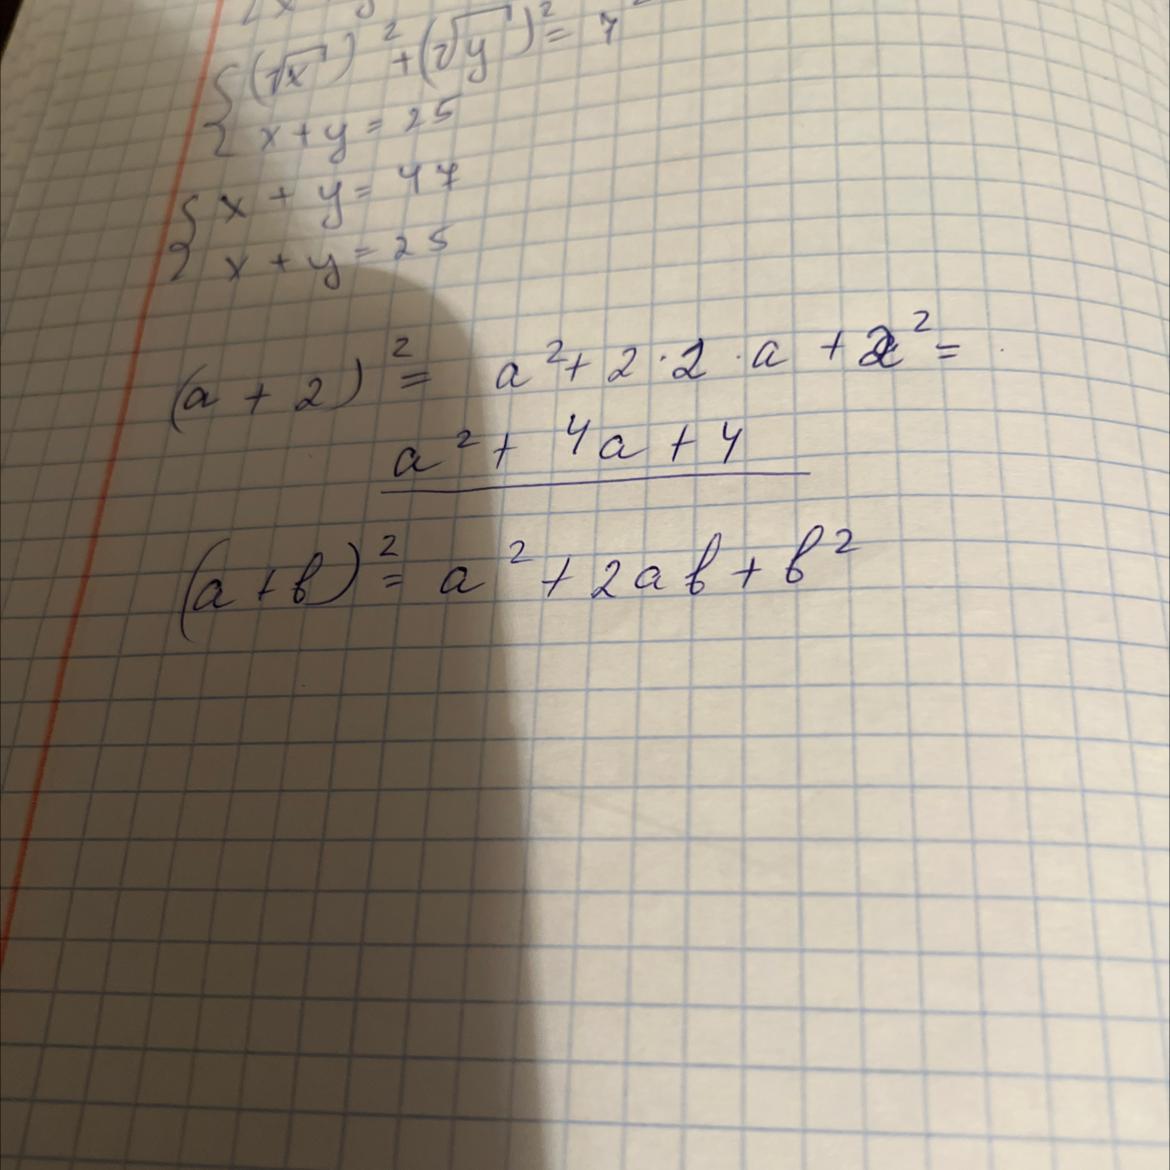 {(√x)² + (√y)² = 7²
{x + y = 25
{x + y = 47
{x + y = 25
(a + 2)² = a² + 2 · 2 · a + 2² =
a² + 4a + 4
(a + b)² = a² + 2ab + b²